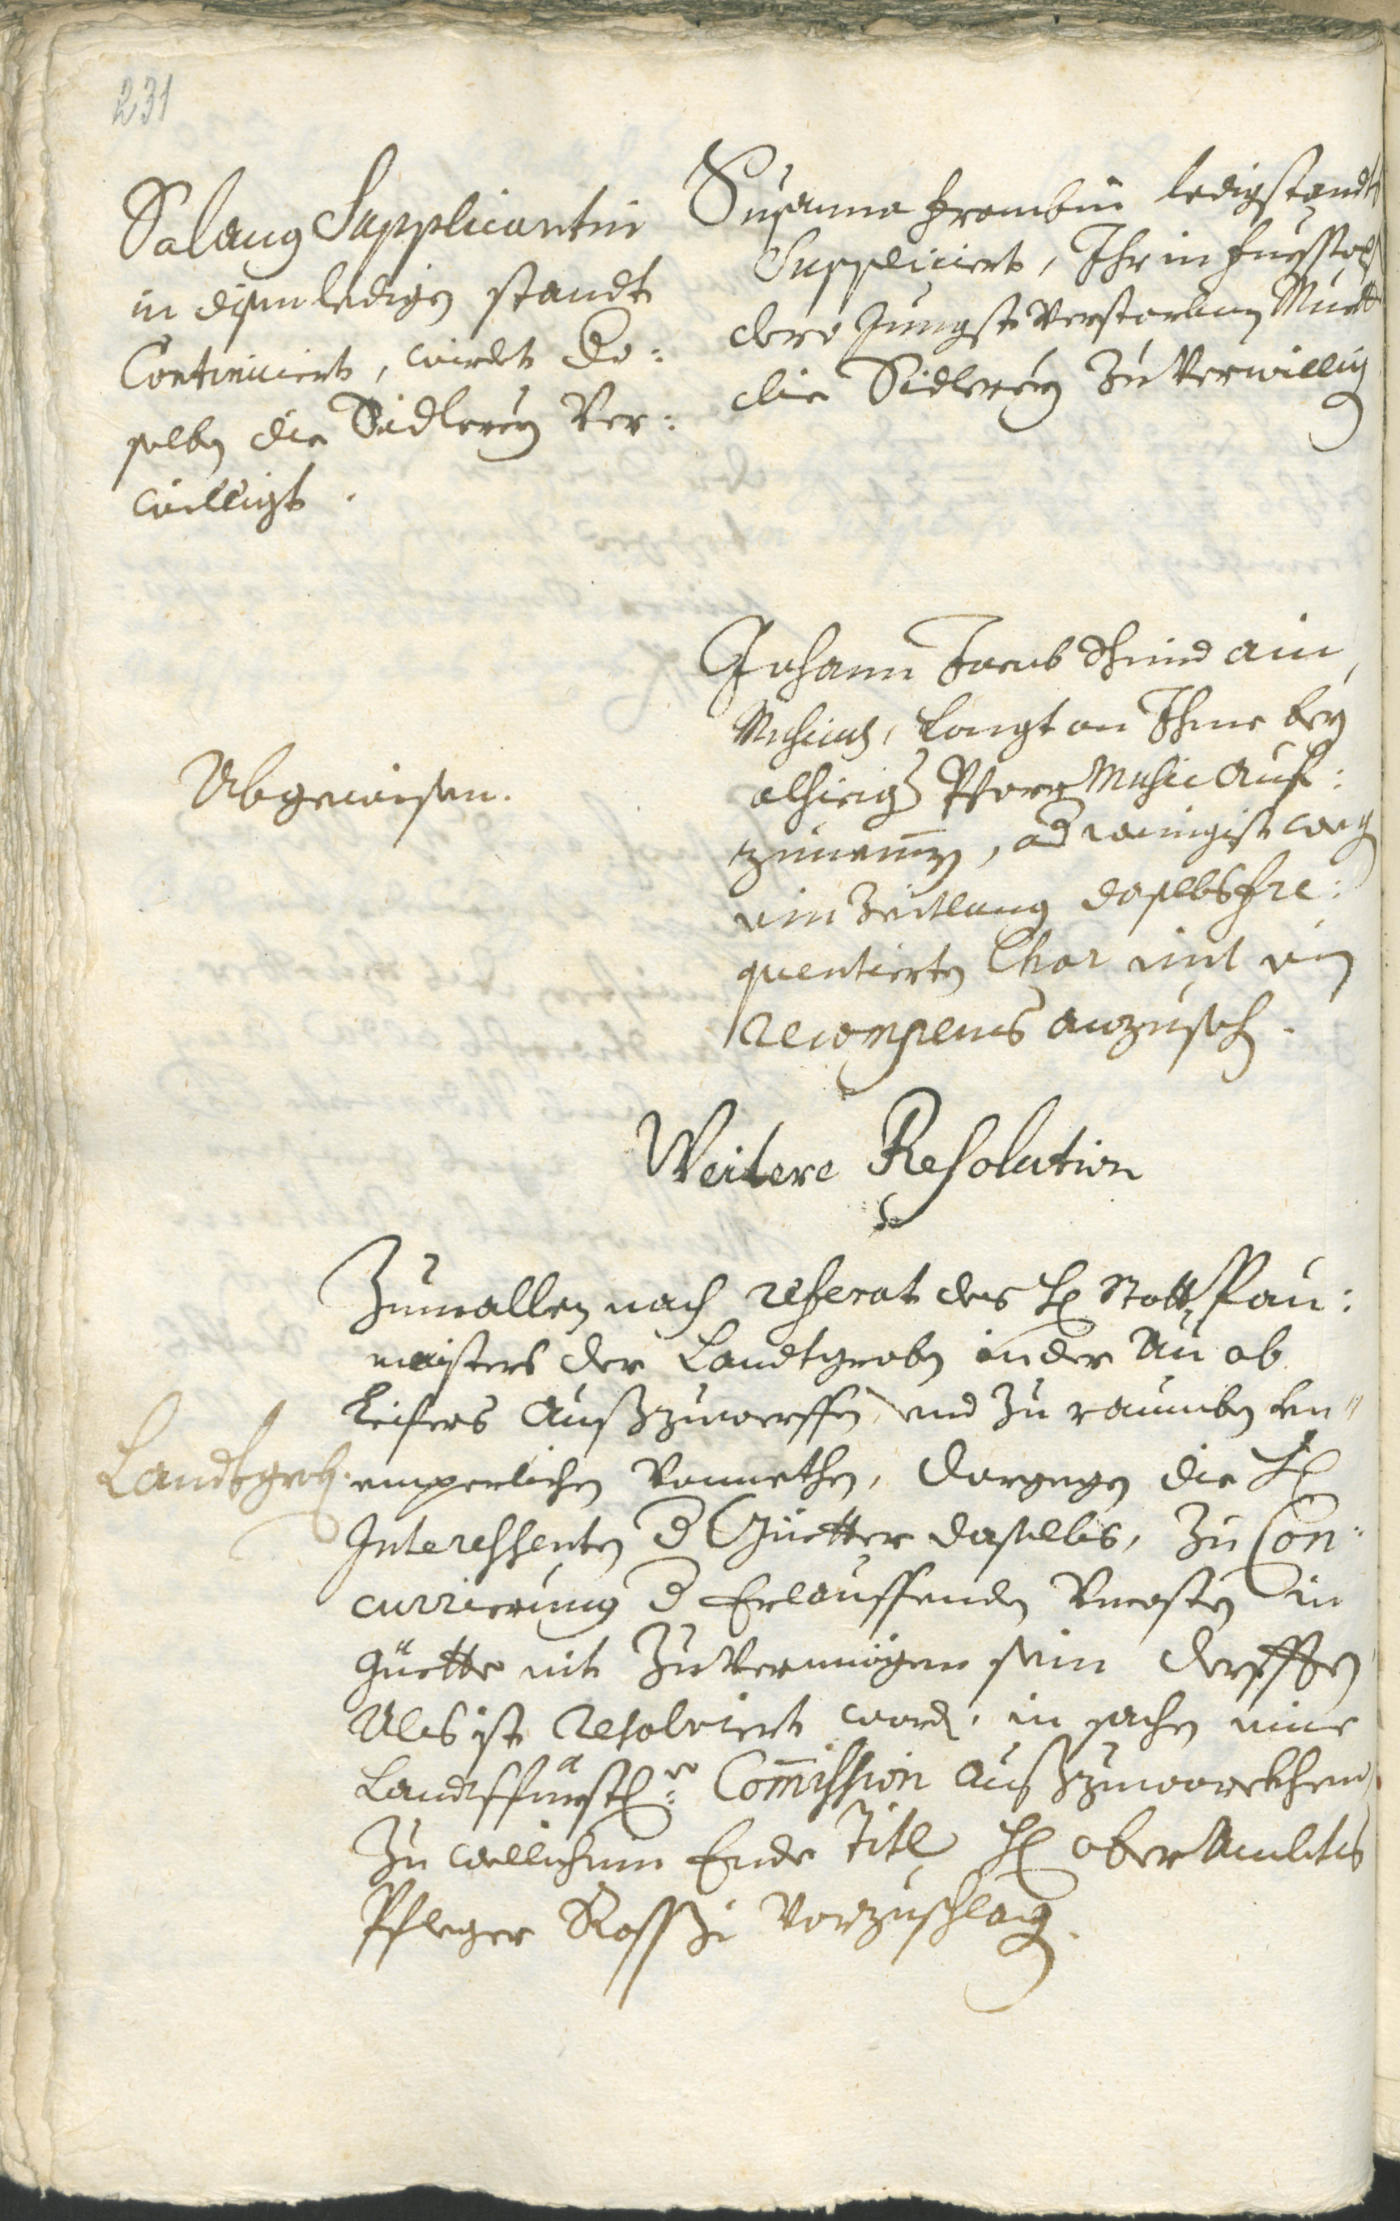 231
Solang Supplicantin
in disem ledigen standt
Continuiert, wirdt Der:
selben die Sidlerey Ver:
willigt.
Susanna Frombin ledigstandts
Suppliciert, Ihr in fuesstapf
dero Jüngst Verstorbnen Muett
die Sidlerey zu Verwillig
Abgewisen.
Johann Jacob Schmid ain
Musicus, Langt an Ihme bey
alhieig Pfarr Music Auf:
zunemmen, od wenigist weg
ein Zeitlang daselbs fre:
quentierten Chor mit ein
recompens anzusech.
Weitere Resolution
Zumallen nach referat des H Statt Pau:
maisters der Landtgraben in der Au ob
Leifers Außzuwerffen, und Zu raumben
Landtgrab.
emperlichen Vonnethen, dargegen die H
Interessenten d Güetter daselbs, Zu Con:
currierung d Erlauffenden Uncosten in
Güette nit Zu Vermögen sein derfften
Als ist resolviert word, in sachen eine
Landtsfürstl: Commission Außzuwürckhen,
Zu wellichem Ende Titl H ober Ambts
Pfleger Rossi Vorzuschlag.